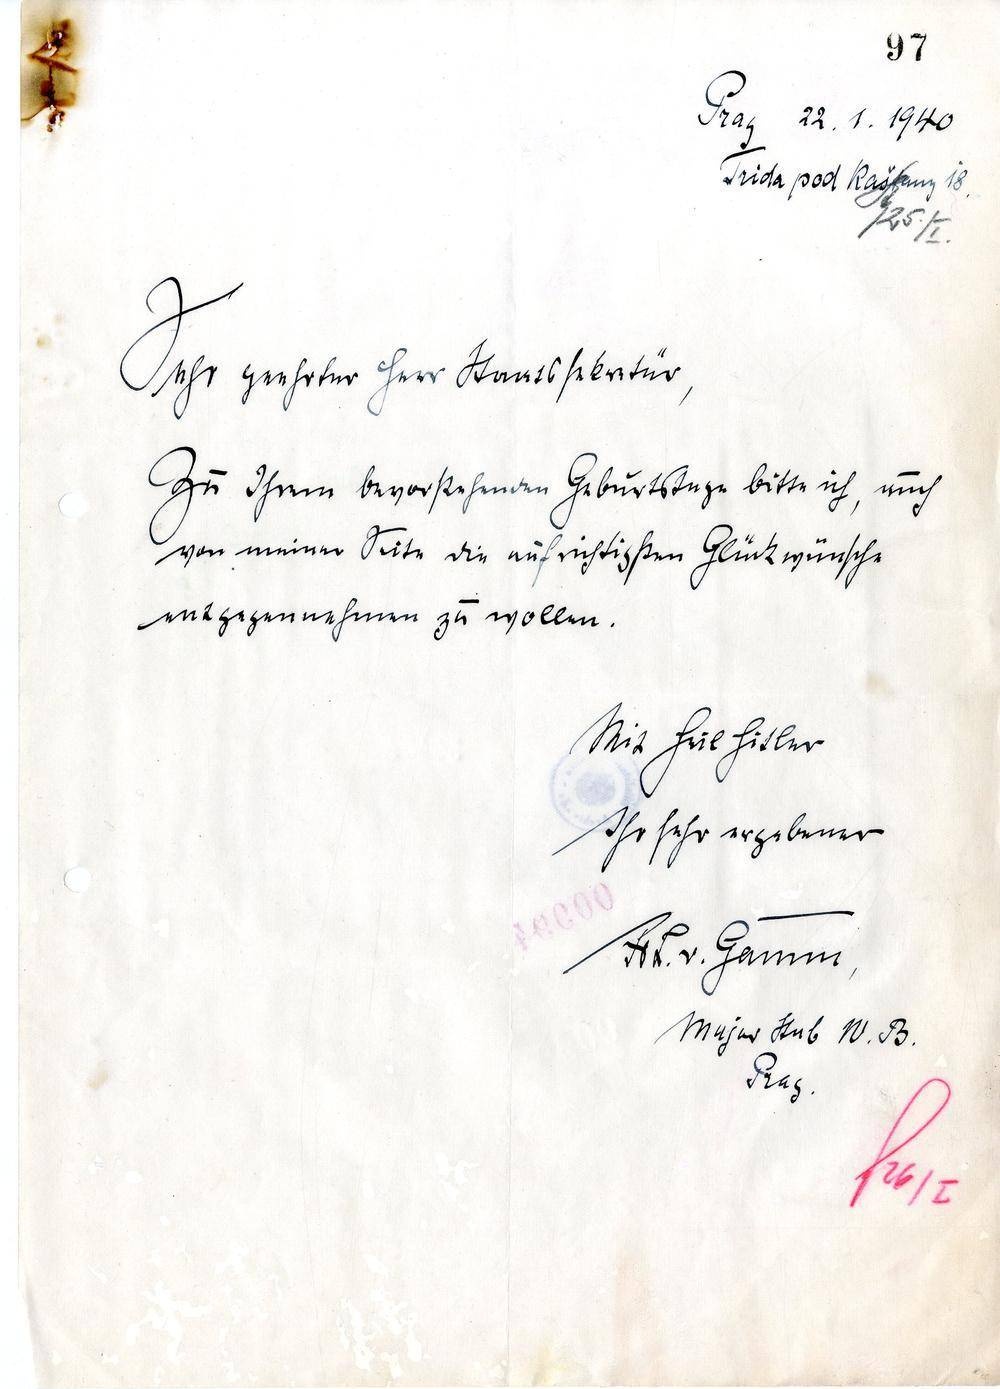 97
Prag 22. 1. 1940
Trida pod Kaštany 18.
25./I.
Sehr geehrter Herr Staatssekretär,
Zu Ihrem bevorstehenden Geburtstage bitte ich, auch
von meiner Seite die aufrichtigsten Glückwünsche
entgegennehmen zu wollen.
Mit Heil Hitler
Ihr sehr ergebener
v. Gamm,
Major Stab W. B.
Prag.
26/I